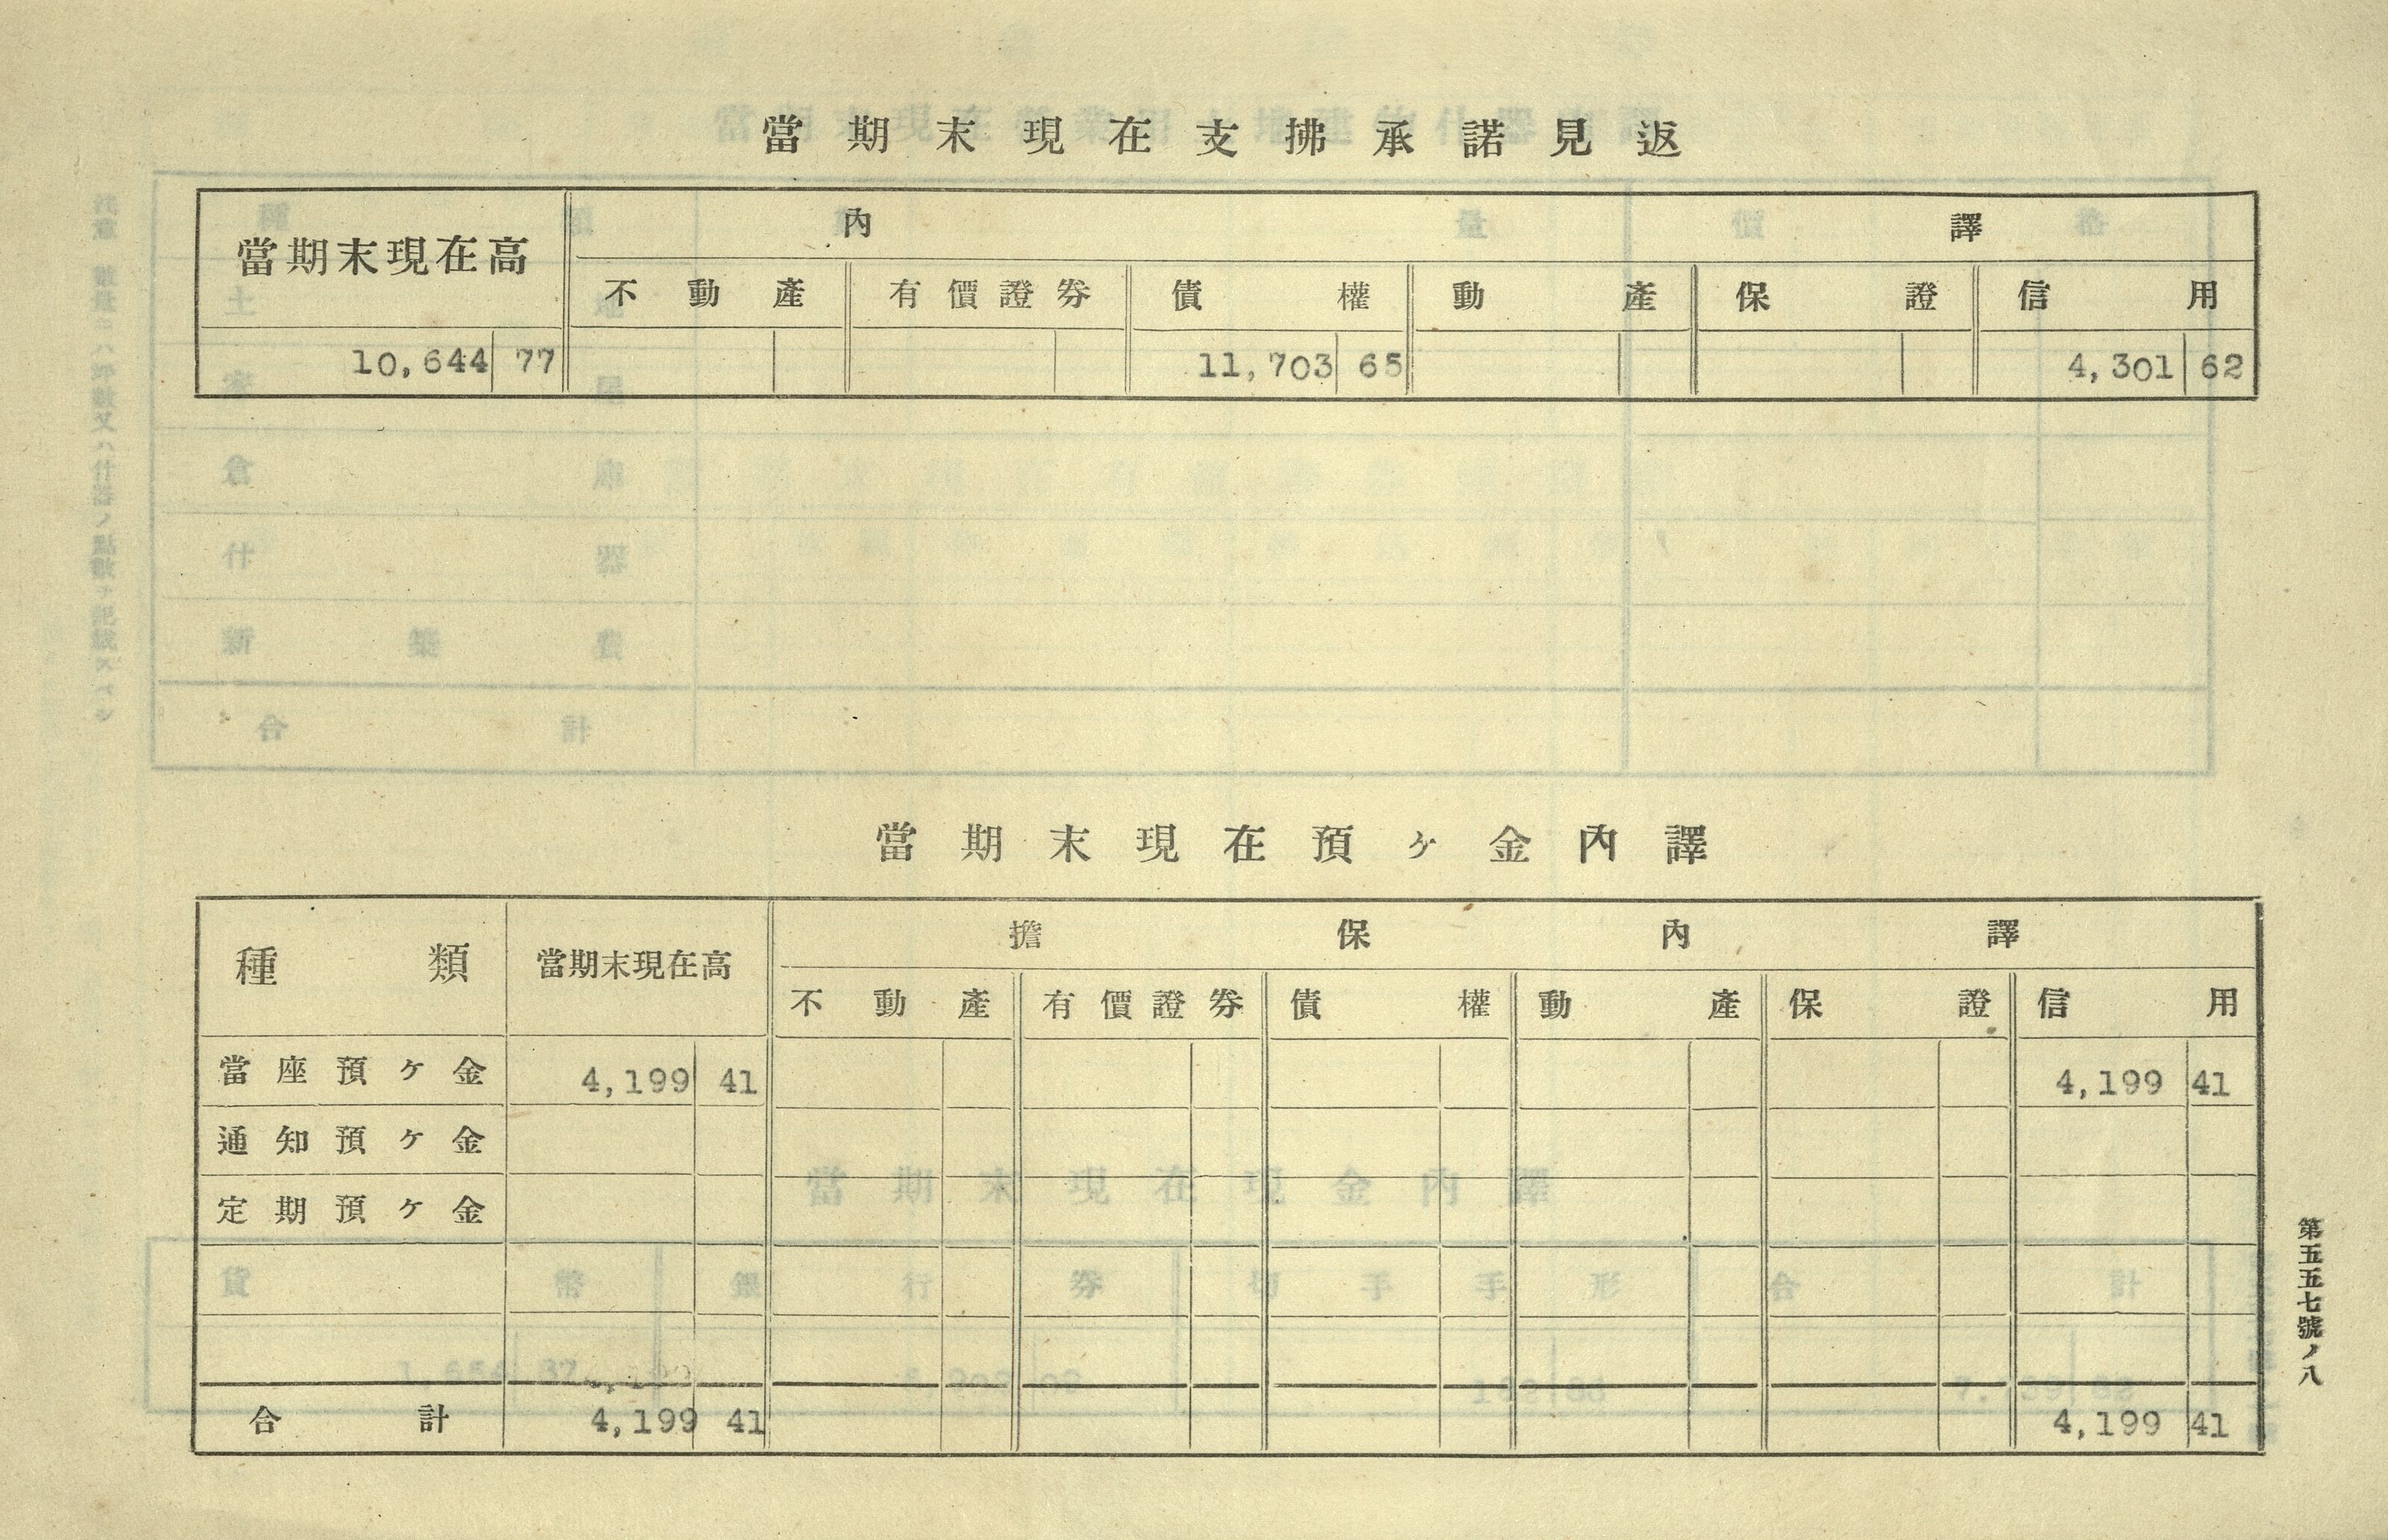 當期末現在支拂承諾見返
當期末現在高 內譯
不動產 有價證券 債權 動產 保證 信用
10,644 77 11,703 65 4,301 62
當期末現在預ヶ金內譯
種類 當期末現在高 擔保內譯
不動產 有價證券 債權 動產 保證 信用
當座預ヶ金 4,199 41 4,199 41
通知預ヶ金
定期預ヶ金
合計 4,199 41 4,199 41
第五五七號ノ八